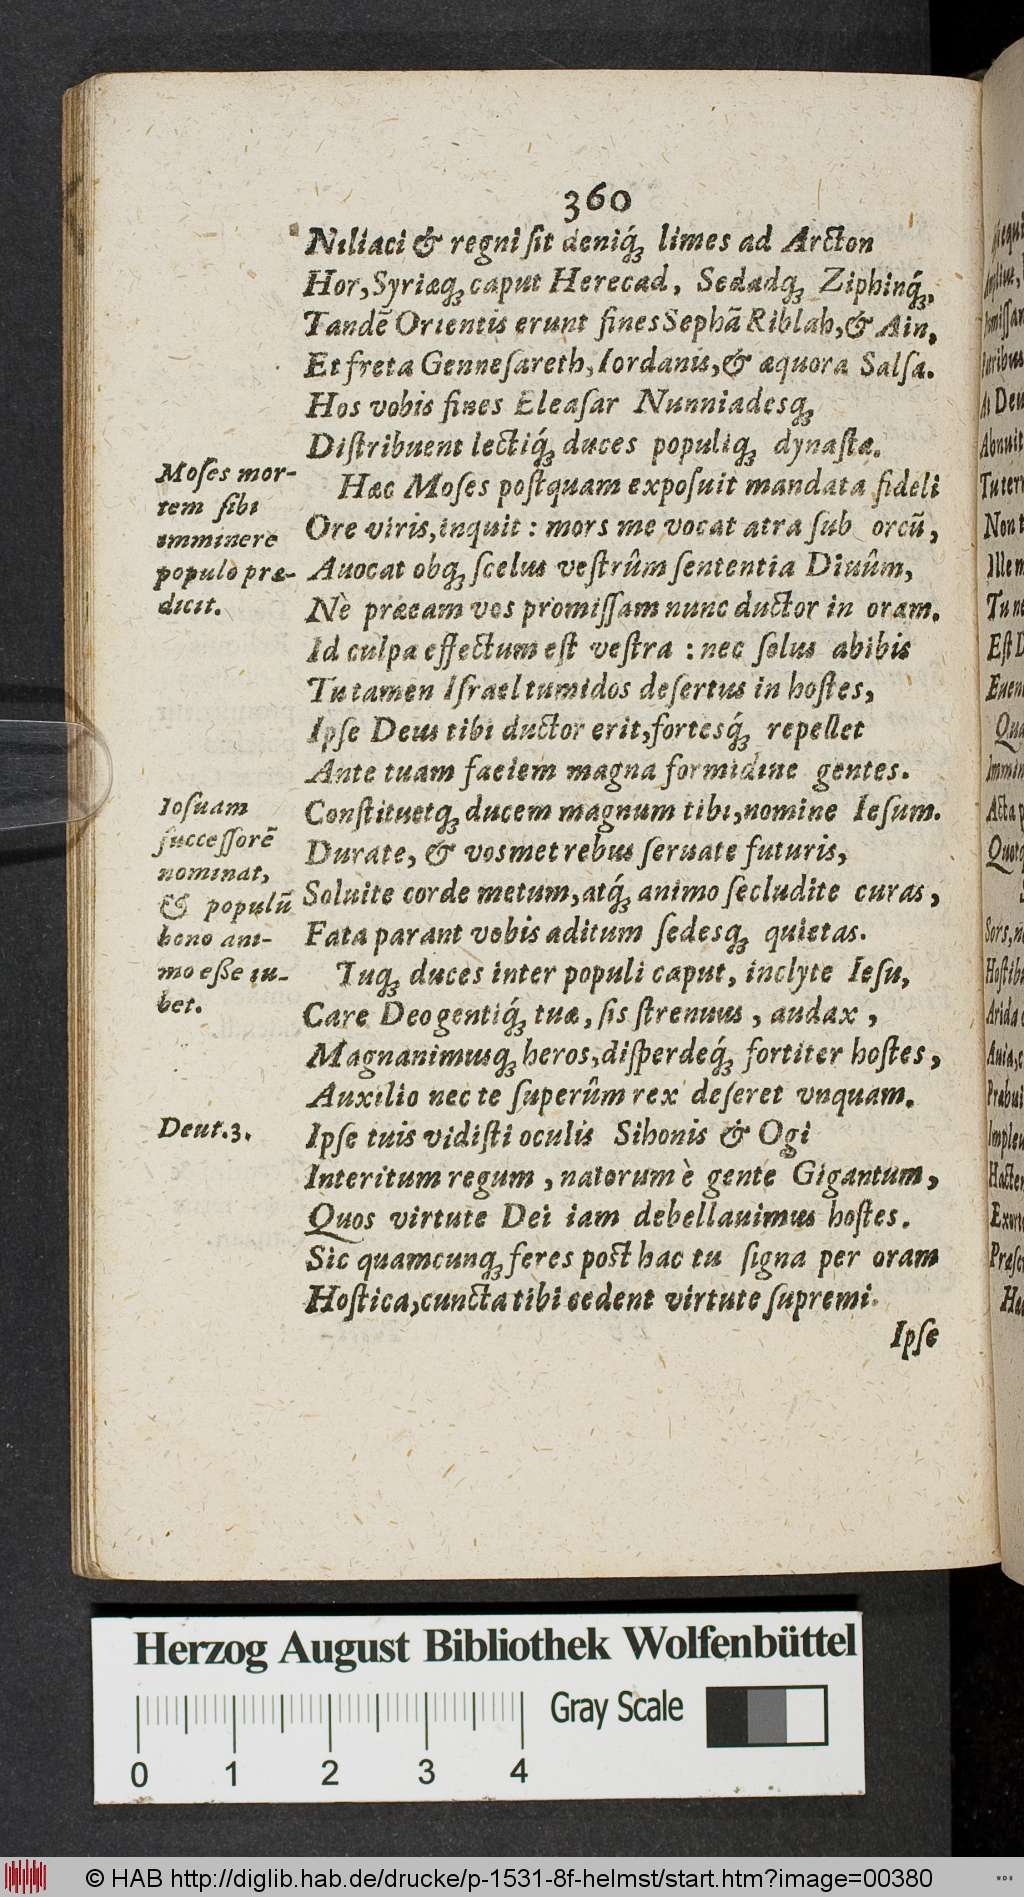 360
Niliaci & regni sit deniq́; limes ad Arcton
Hor, Syriæq; caput Herecad, Sedadq; Ziphinq́;,
Tandē Orientis erunt fines Sephā Riblah, & Ain,
Et freta Gennesareth, Iordanis, & æquora Salsa.
Hos vobis fines Eleasar Nunniadesq;
Distribuent lectiq́; duces populiq; dynastæ.
Hæc Moses postquam exposuit mandata fideli
Ore viris, inquit: mors me vocat atra sub orcū,
Auocat obq; scelus vestrûm sententia Diuûm,
Nè præeam vos promissam nunc ductor in oram.
Id culpa effectum est vestra: nec solus abibis
Tu tamen Israel tumidos desertus in hostes,
Ipse Deus tibi ductor erit, fortesq́; repellet
Ante tuam faciem magna formidine gentes.
Constituetq; ducem magnum tibi, nomine Iesum.
Durate, & vosmet rebus seruate futuris,
Soluite corde metum, atq́; animo secludite curas,
Fata parant vobis aditum sedesq; quietas.
Tuq; duces inter populi caput, inclyte Iesu,
Care Deo gentiq́; tuæ, sis strenuus, audax,
Magnanimusq; heros, disperdeq́; fortiter hostes,
Auxilio nec te superûm rex deseret vnquam.
Ipse tuis vidisti oculis Sihonis & Ogi
Interitum regum, natorum è gente Gigantum,
Quos virtute Dei iam debellauimus hostes.
Sic quamcunq; feres post hac tu signa per oram
Hostica, cuncta tibi cedent virtute supremi.
Ipse
Moses mor-
tem sibi
imminere
populo præ-
dicit.
Iosuam
successorē
nominat,
& populū
bono ani-
mo eße iu-
bet.
Deut. 3.
Herzog August Bibliothek Wolfenbüttel
Gray Scale
0 1 2 3 4
© HAB http://diglib.hab.de/drucke/p-1531-8f-helmst/start.htm?image=00380